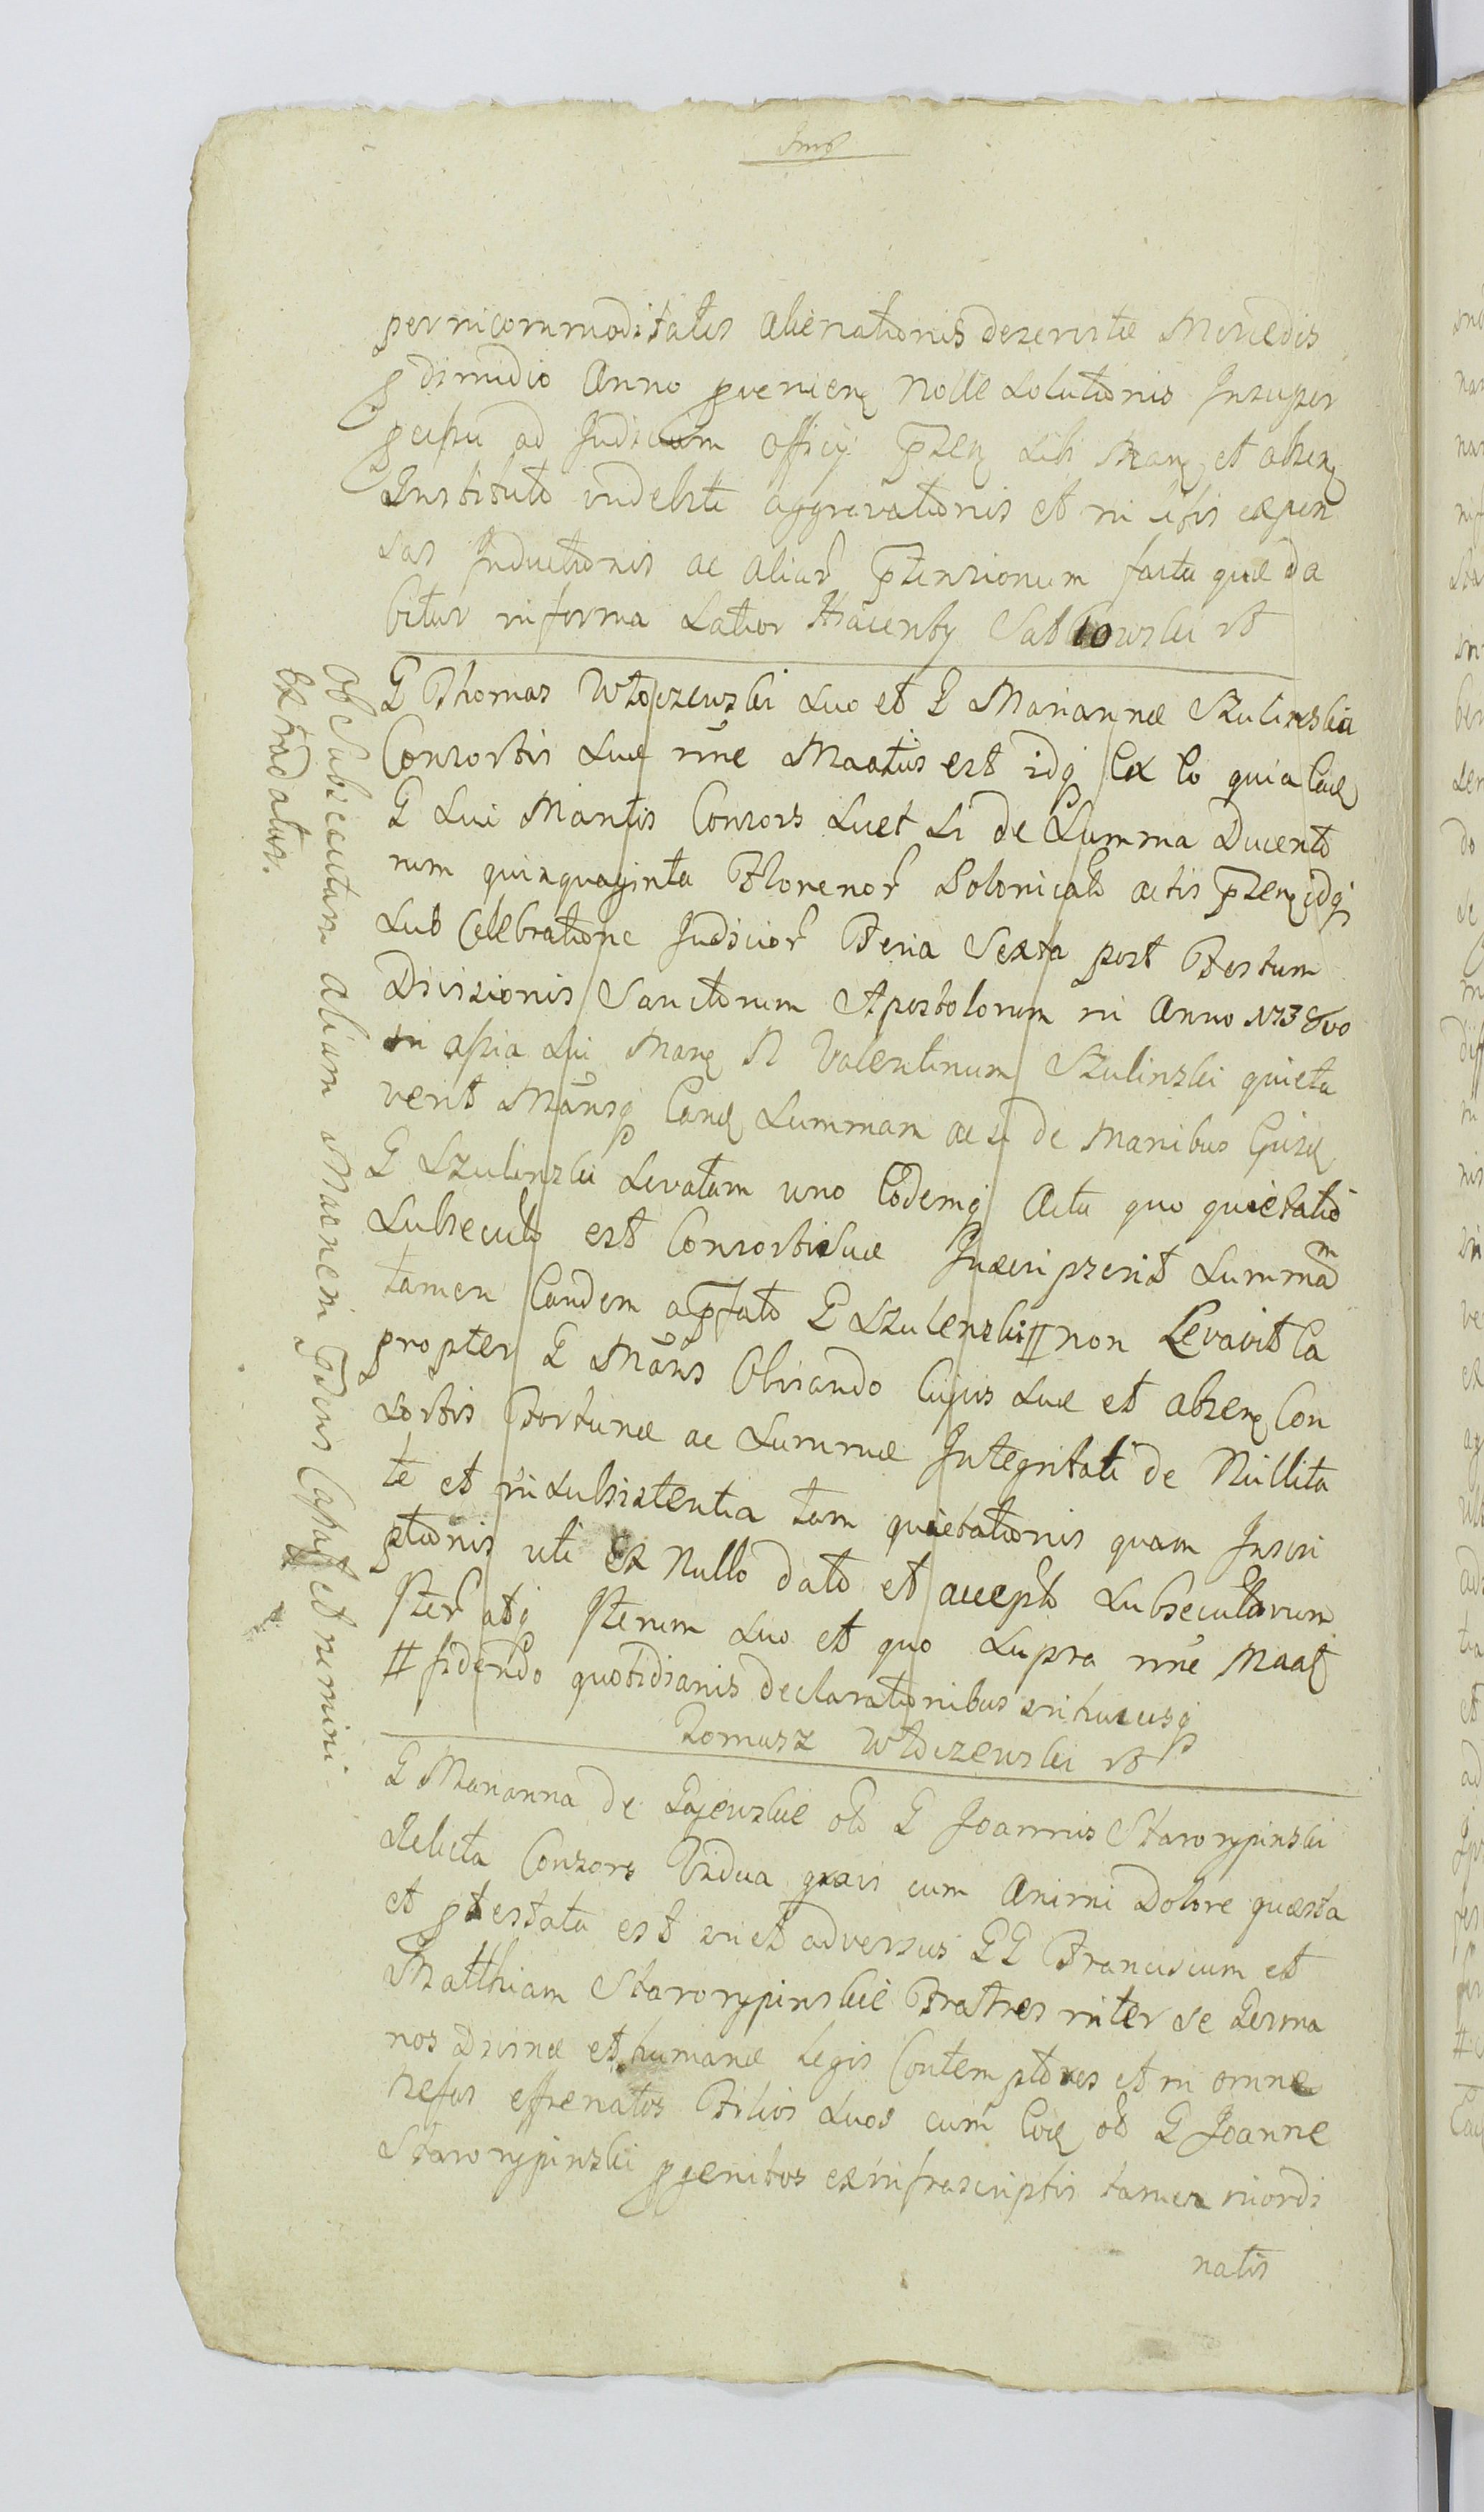 per incommoditatis alienationis dezervitæ Mercedis
dimidio Anno proveniens Nolle Solutionis Insuper
ad Judicium Officij sibi Man et absens
Institutio indebite aggravationis et in litis expen
sas Inductionis ac aliar ptensionum facta quæ da
bitur in forma Latior Hiacenty Sablowski
G Thomas Włoczewski suo et G Mariannæ Szulinskia
Consortis suæ nne Maatus est idq Ex Eo quia
G sui Mantis Consors suet si de Summa Ducento
rum quinquaginta Florenor Polonicali actis idq
sub Celebratione Judicior Feria Sexta post Festum
Divisionis Sanctorum Apostolorum in Anno 1738vo
in assia sui Man N Valentinum Szulinski quieta
verit Mansq Eand Summam ac si de Manibus
G Szulinski Levatam uno Eodemq Actu quo quietatio
Subsecuta est Consorti suæ Inscripserit Summam
tamen Eandem G Szulenski # non Levavit Ea
propter G Mans Obviando Cujus suæ et absen Con
sortis Fortunæ ac Summæ Integritati de Nullita
te et insubsistentia tam quietationis quam Inscri
ptionis uti Ex Nullo dato et accepto Subsecutorum
Iter atq Iterum suo et quo supra nne Maat
# fidendo quotidianis declarationibus in hucusq
Tomasz Włoczewski
Ob Subsecutam aliam Maonem Idens Cassat et nemini
Extradatur.
G Marianna de Gajewskie G Joannis Starorypinski
Relicta Consors Vidua gravi cum Animi Dolore quæsta
et ptestata est in et adversus GG Franciscum et
Matthiam Starorypinskie Fratres inter se Germa
nos Divinæ et humanæ Legis Contemptores et in omne
Nefas effrenatos Filios suos cum G Joanne
Starorypinski pgenitos ex infrascriptis tamen inordi
natis